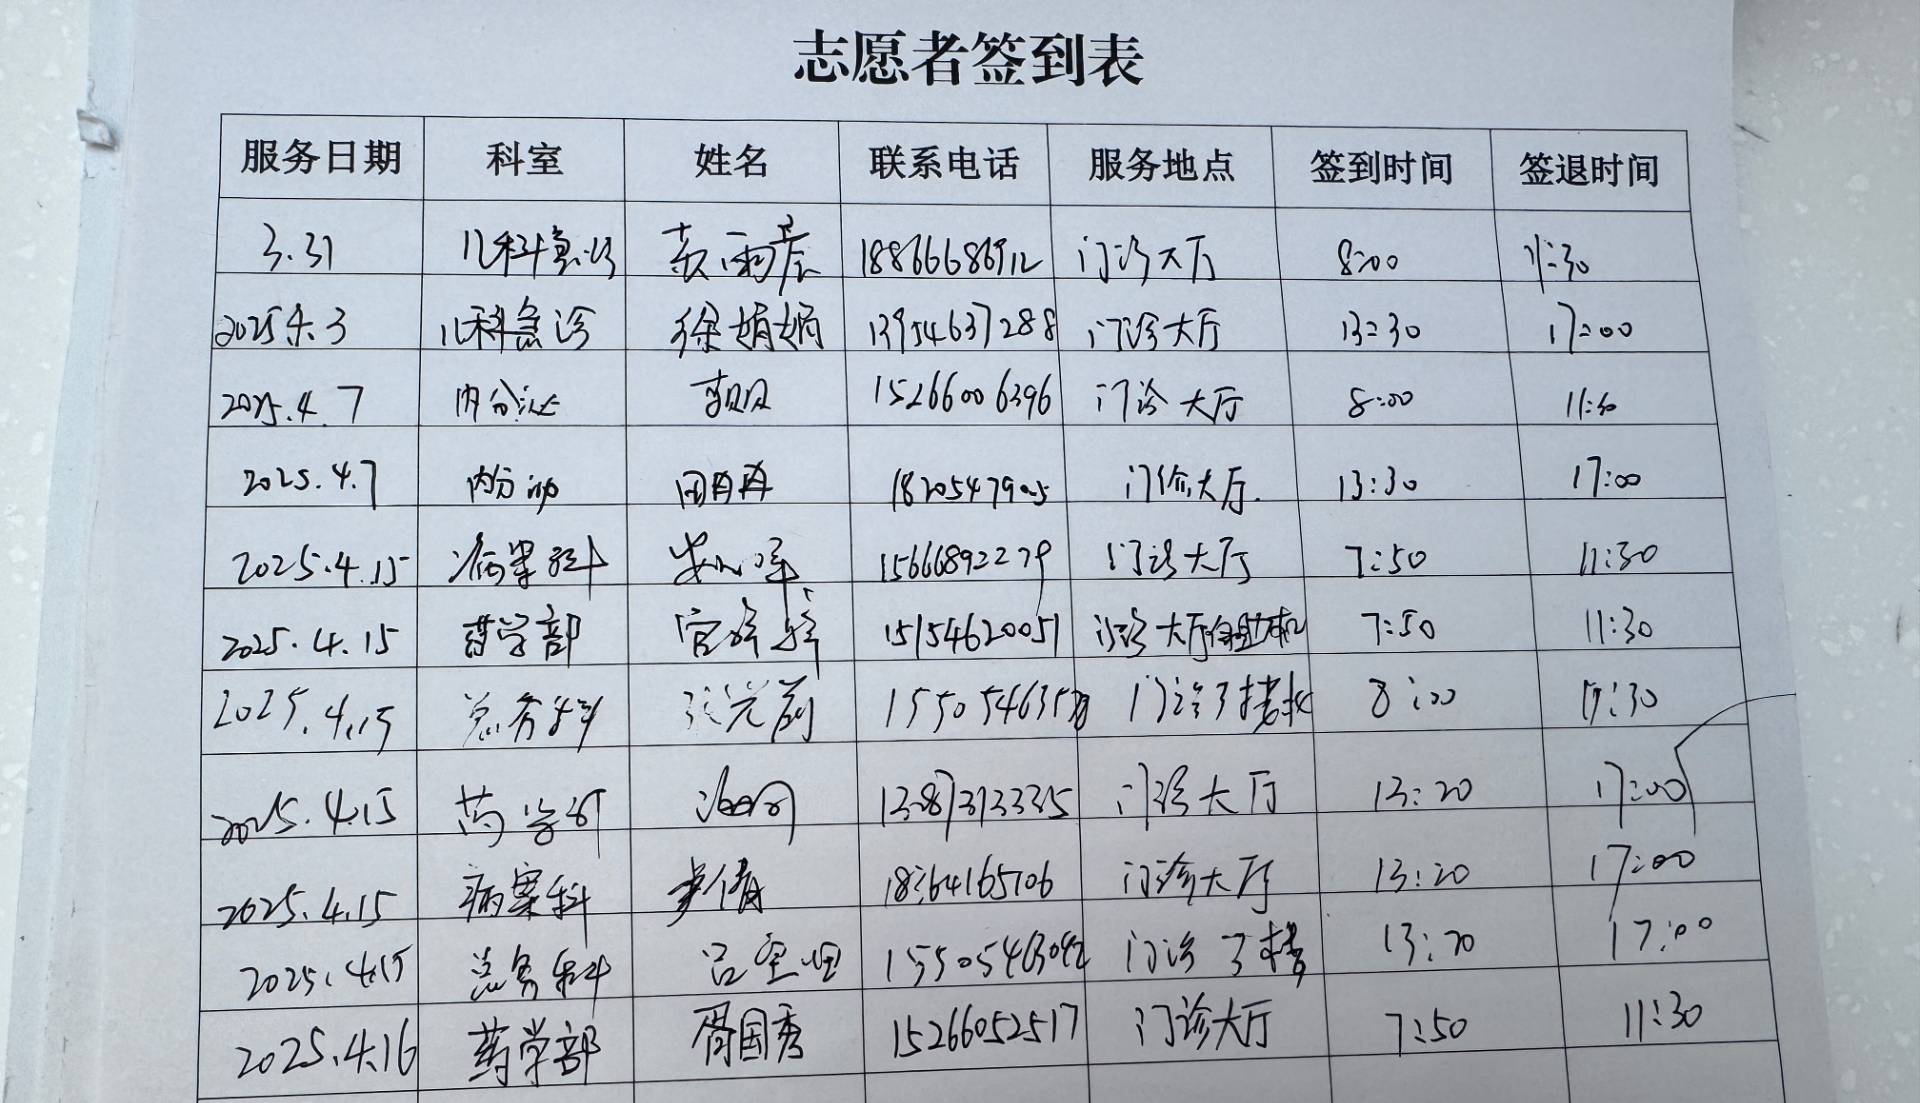 志愿者签到表
服务日期 科室 姓名 联系电话 服务地点 签到时间 签退时间
3.31 儿科急诊 雨辰 18866686912 门诊大厅 8:00 11:30
2025 4.3 儿科急诊 徐娟娟 13954637288 门诊大厅 13:30 17:00
2025.4.7 内分泌 15266006396 门诊大厅 8:00 11:30
2025.4.7 内分泌 田冉冉 18205479005 门诊大厅 13:30 17:00
2025.4.15 病案科 15666892279 门诊大厅 7:50 11:30
2025.4.15 药学部 宫 15154620051 门诊大厅自助机 7:50 11:30
2025.4.15 总务科 张光前 门诊 8:00 :30
2025.4.15 药学部 门诊大厅 13:20 17:00
2025.4.15 病案科 倩 18364165106 门诊大厅 13:20 17:00
2025.4.15 总务科 吕 15505463092 门诊 13:20 17:00
2025.4.16 药学部 国秀 15266052517 门诊大厅 7:50 11:30